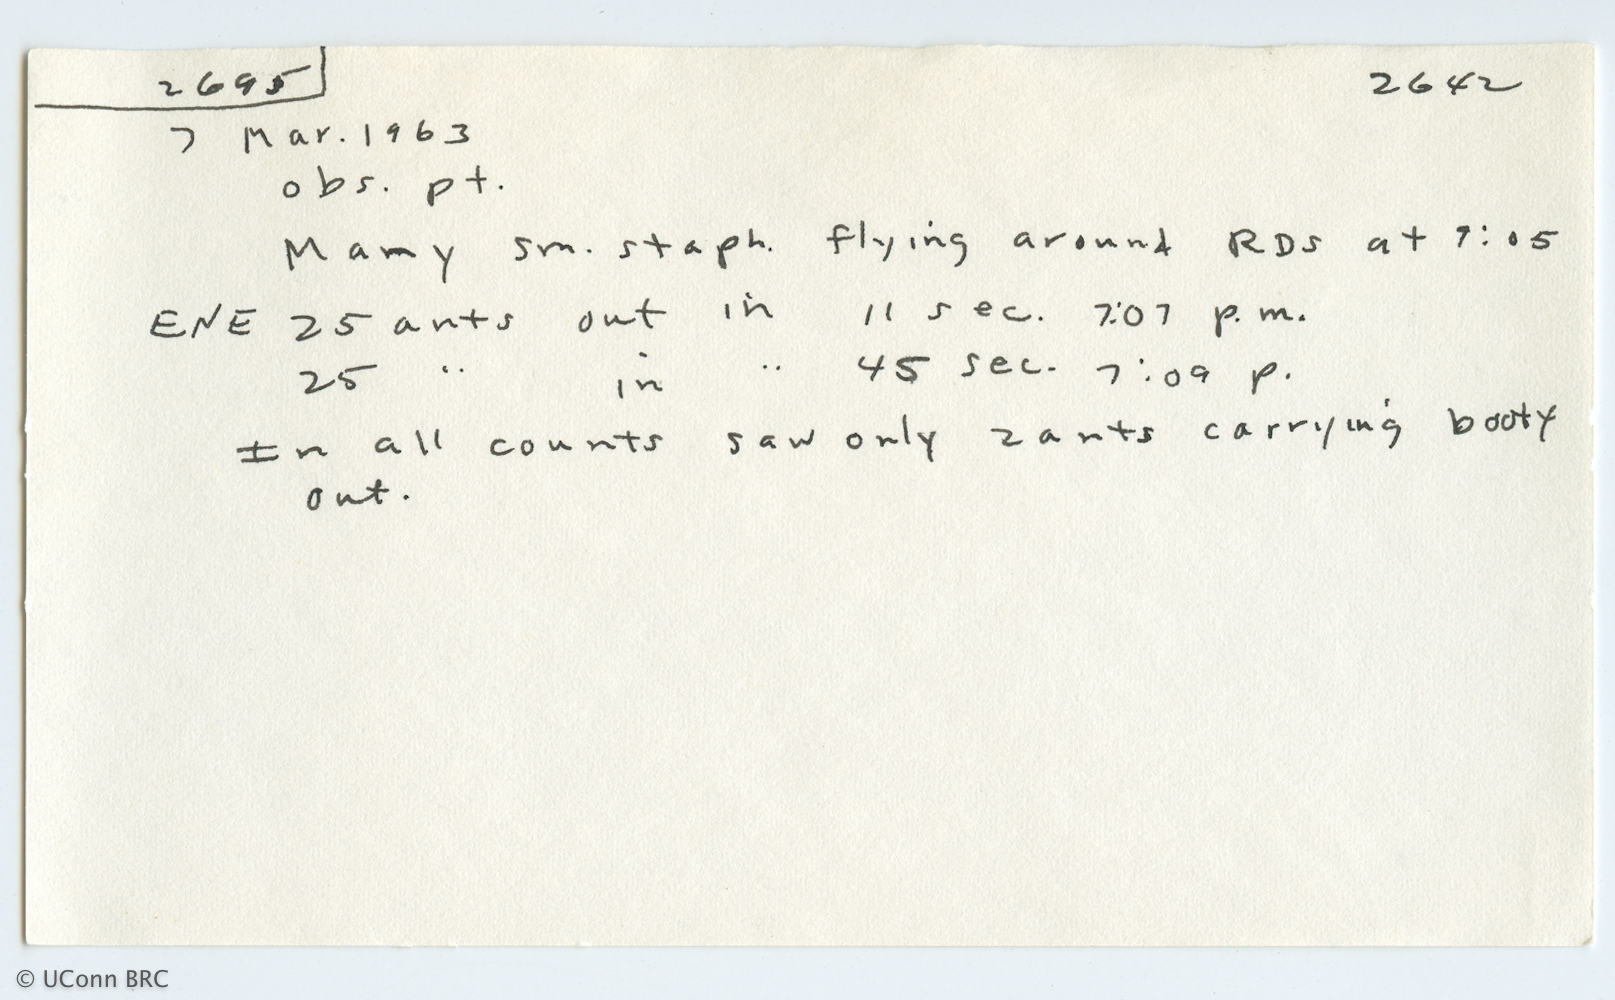 2695 2642
7 Mar. 1963
obs. pt.
Many sm. staph. flying around RDS at 7:05
ENE 25 ants out in 11 sec. 7:07 p.m.
25 " in " 45 sec. 7:09 p.
In all counts saw only 2 ants carrying booty
out.
© UConn BRC